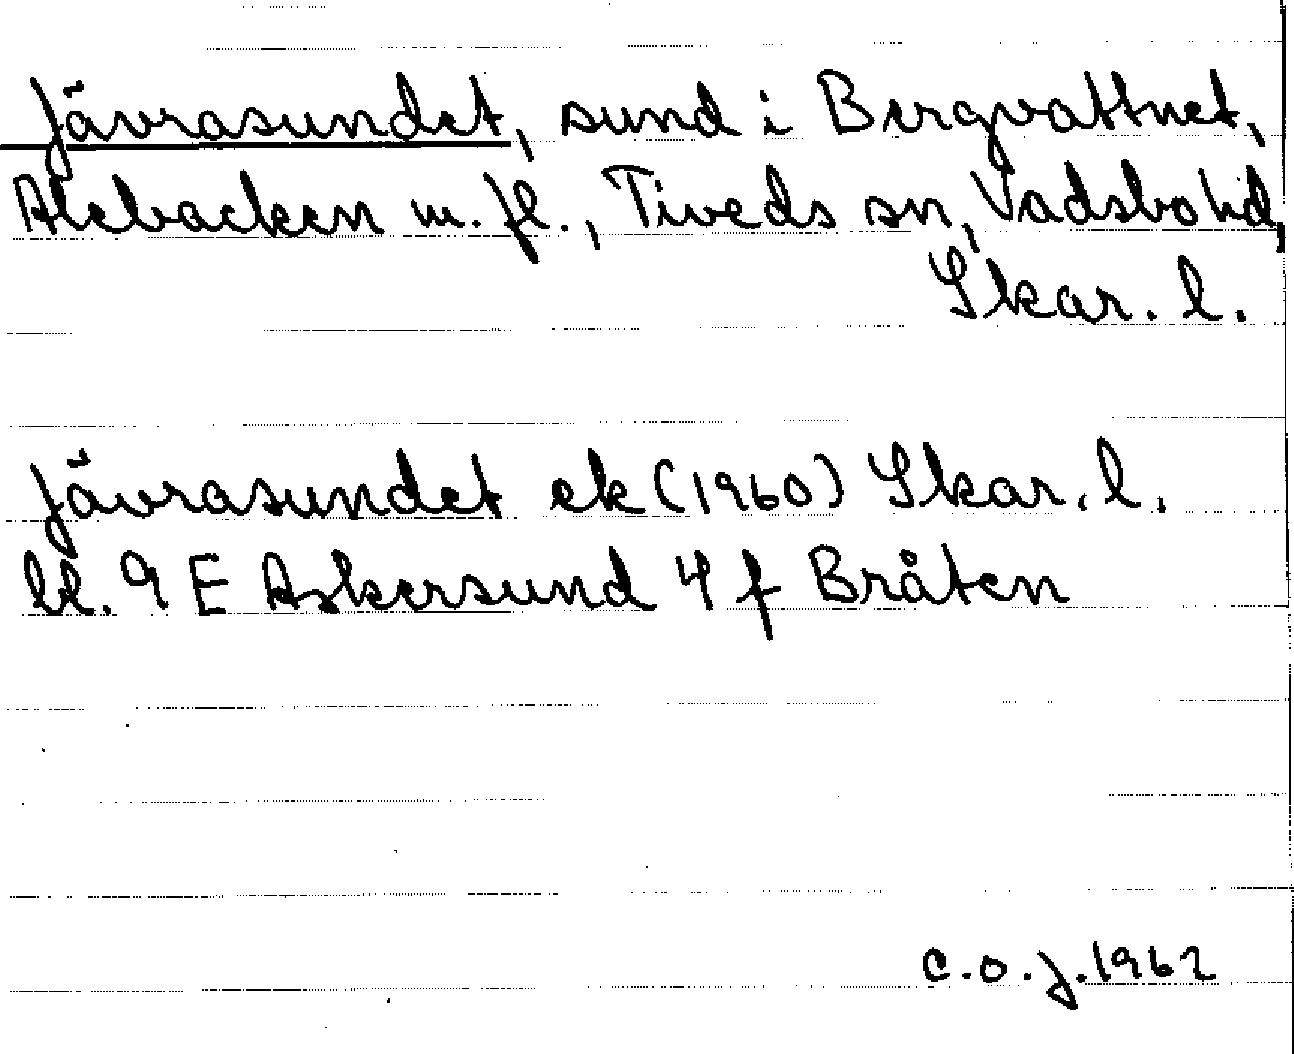 Jävrasundet, sund i Bergvattnet,
Alebacken m.fl., Tiveds sn, Vadsbo hd,
Skar. l.
Jävrasundet ek (1960) Skar. l.
bl. 9 E Askersund 4 f Bråten
C.O.J. 1962